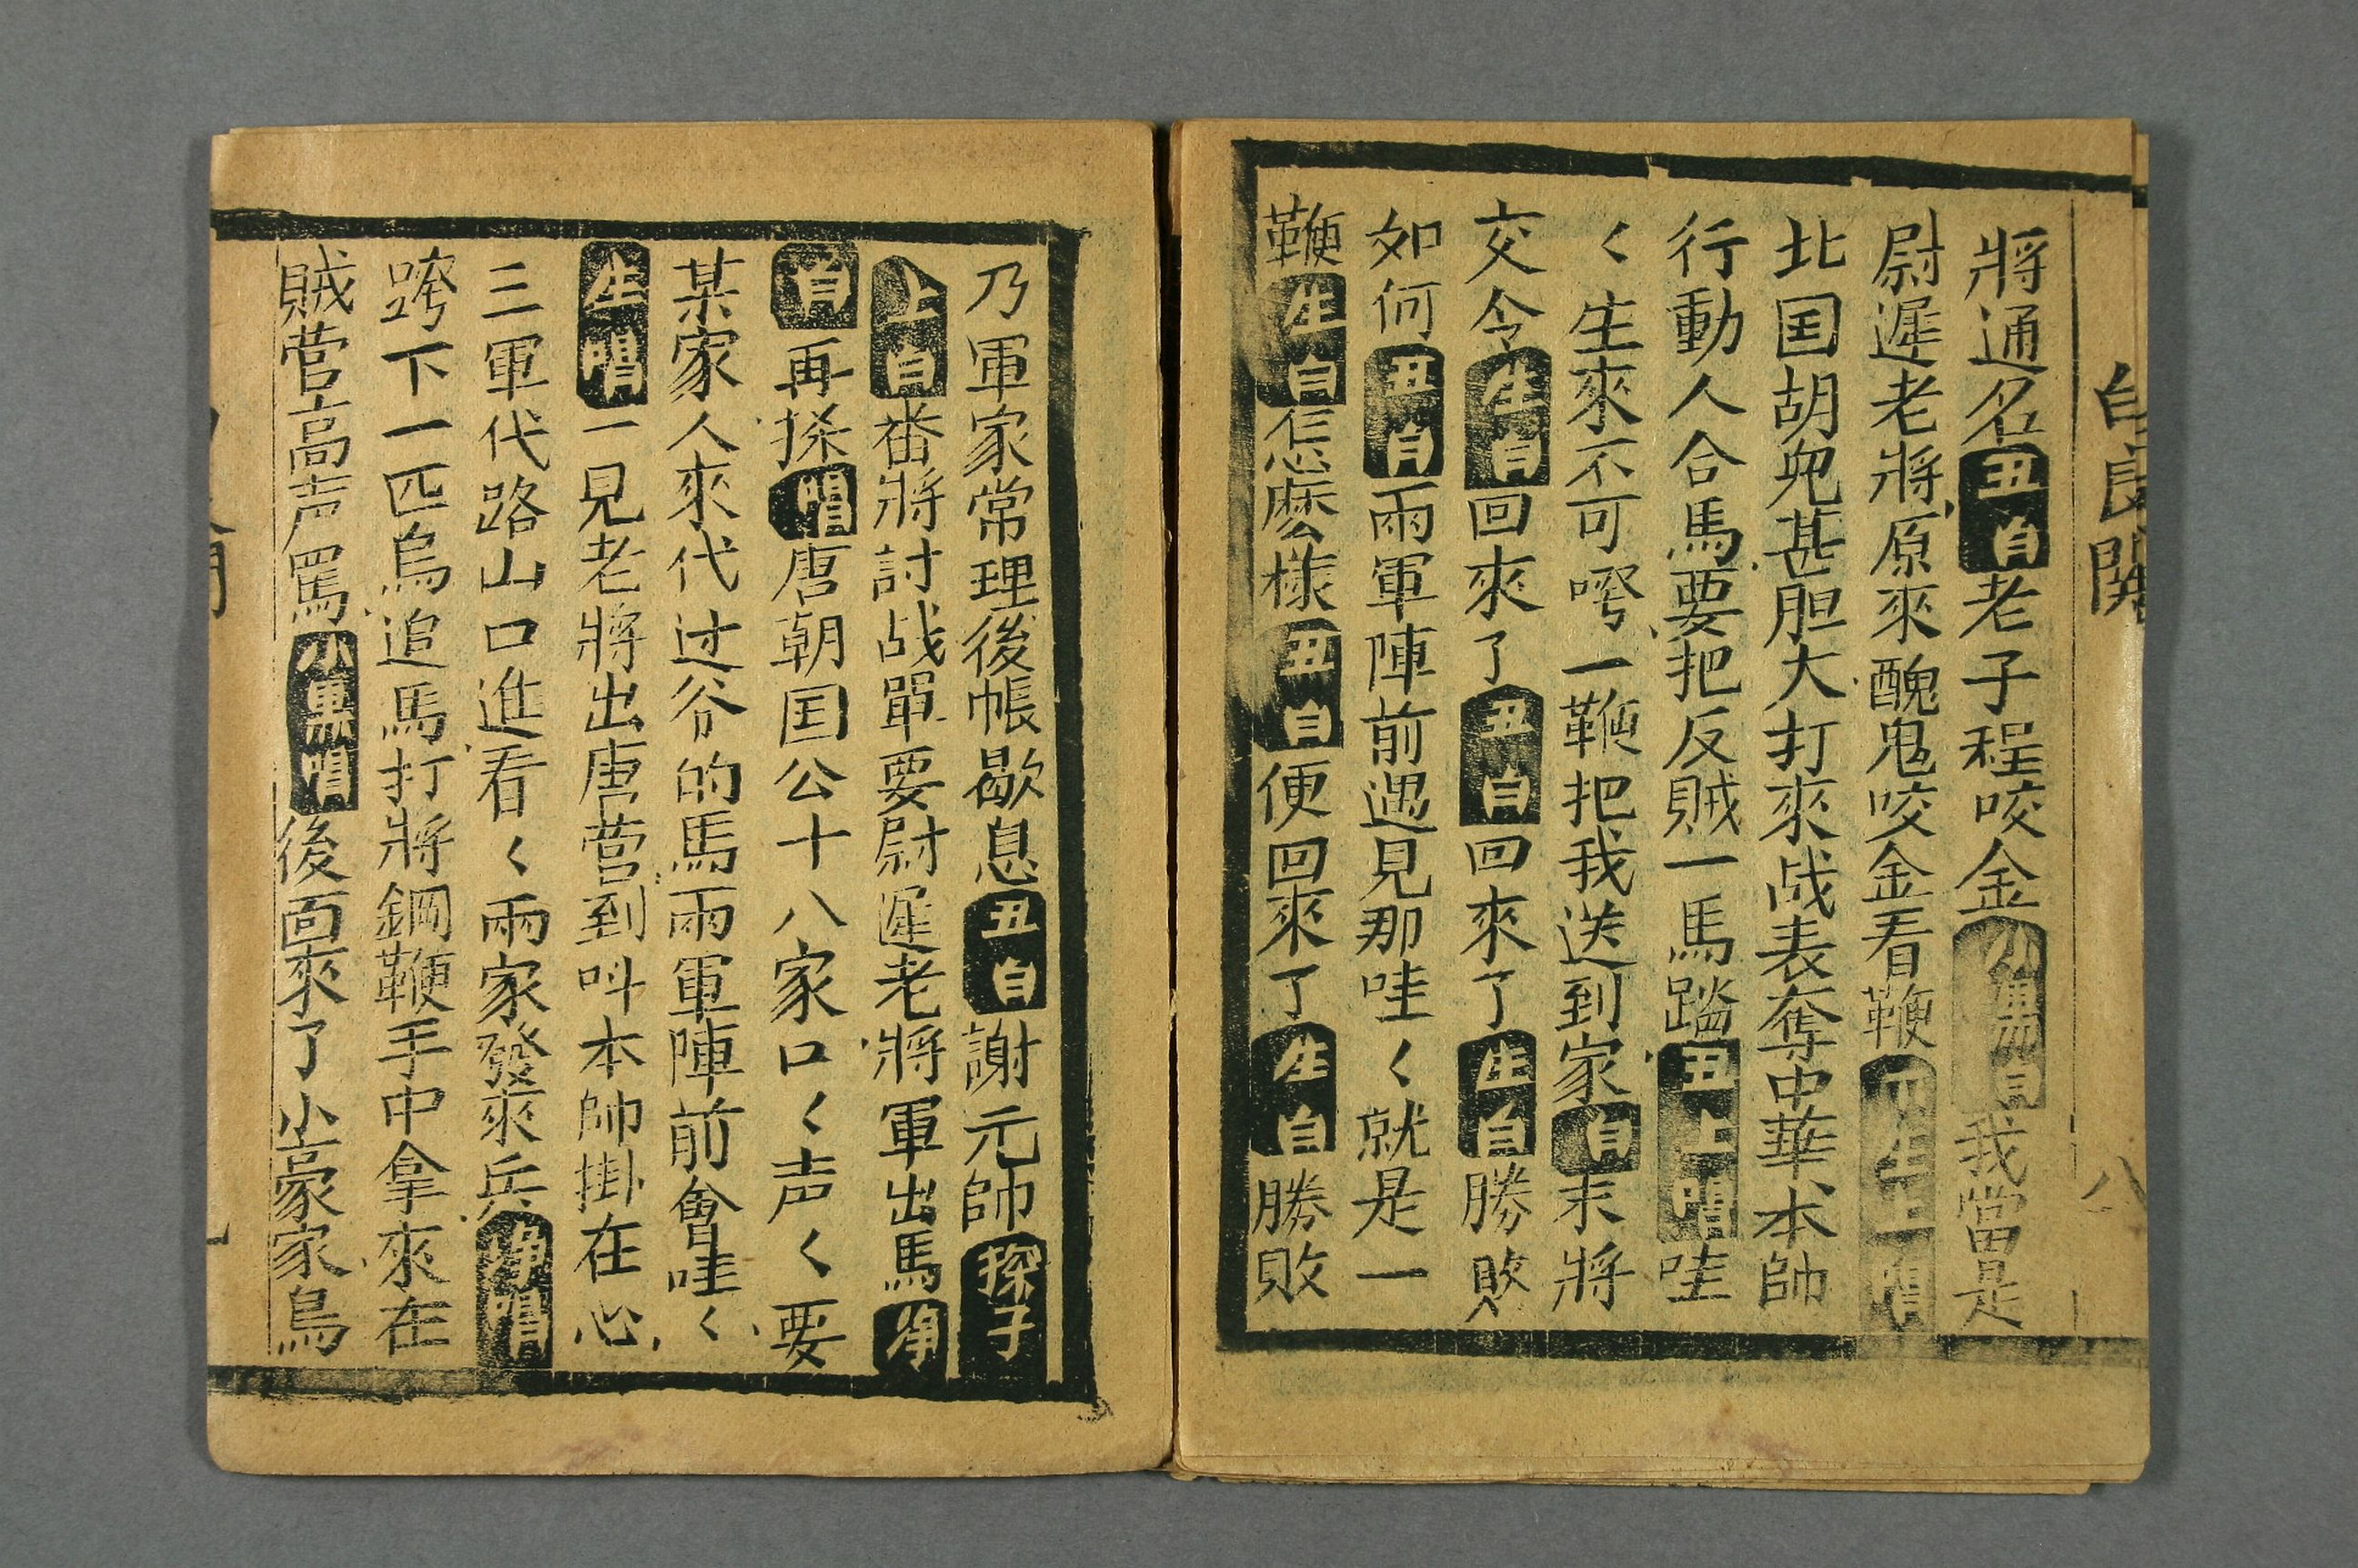 白良関
八
將通名丑白老子程咬金小黑白我當是
尉遲老將原來醜鬼咬金看鞭下生上唱
北国胡兜甚胆大打來战表奪中華本帥
行動人合馬要把反賊一馬踏丑上唱哇
く生來不可哼一鞭把我送到家白末將
交令生白回來了丑白回來了生白勝敗
如何丑白兩軍陣前遇見那哇く就是一
鞭生白怎麽樣丑白便回來了生白勝敗
乃軍家常理後帳歇息丑白謝元帥探子
上白番將討战單要尉遲老將軍出馬净
白再探唱唐朝国公十八家口く声く要
某家人來代过谷的馬兩軍陣前會哇く
生唱一見老將出唐营到呌本帥掛在心
三軍代路山口進看く兩家發來兵净唱
跨下一匹烏追馬打將鋼鞭手中拿來在
賊营高声罵小黑唱後面來了尘豪家鳥